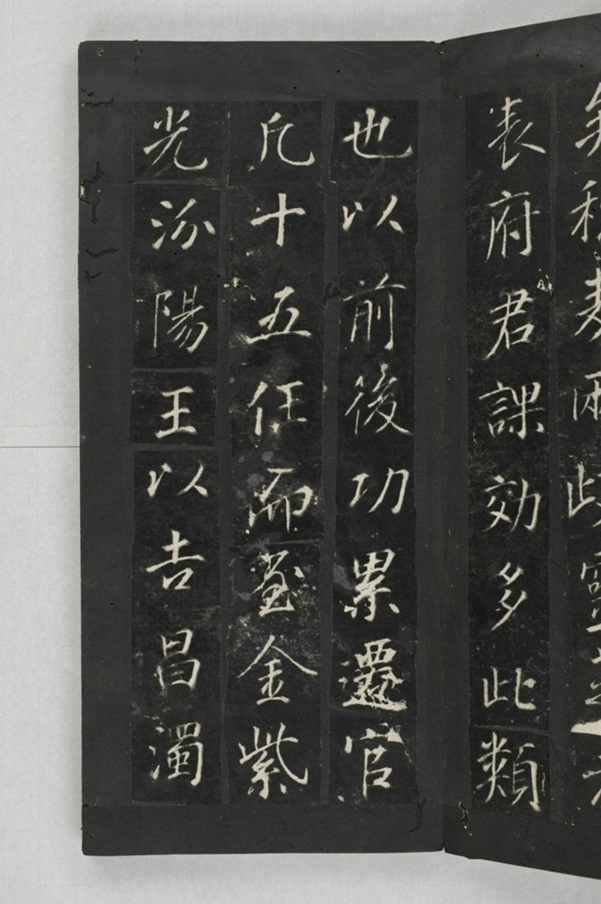 表府君課効多此類
也以前後功累遷官
凡十五任而至金紫
光汾陽王以吉昌濁